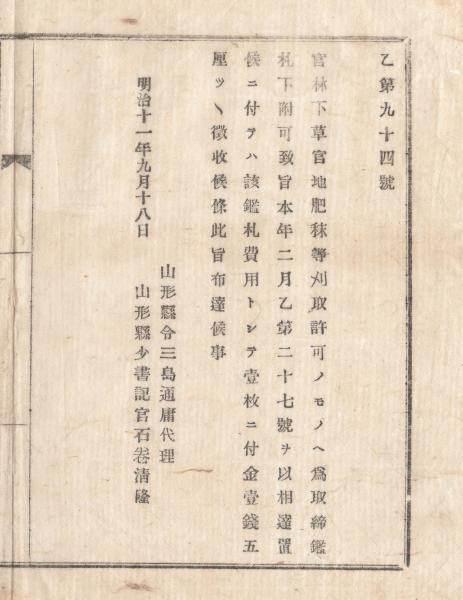 乙第九十四號
官林下草官地肥秣等刈取許可ノモノヘ爲取締鑑
札下附可致旨本年二月乙第二十七號ヲ以相達置
候ニ付テハ該鑑札費用トシテ壹枚ニ付金壹錢五
厘ツヽ徴收候條此旨布達候事
明治十一年九月十八日
山形縣令三島通庸代理
山形縣少書記官石卷淸隆